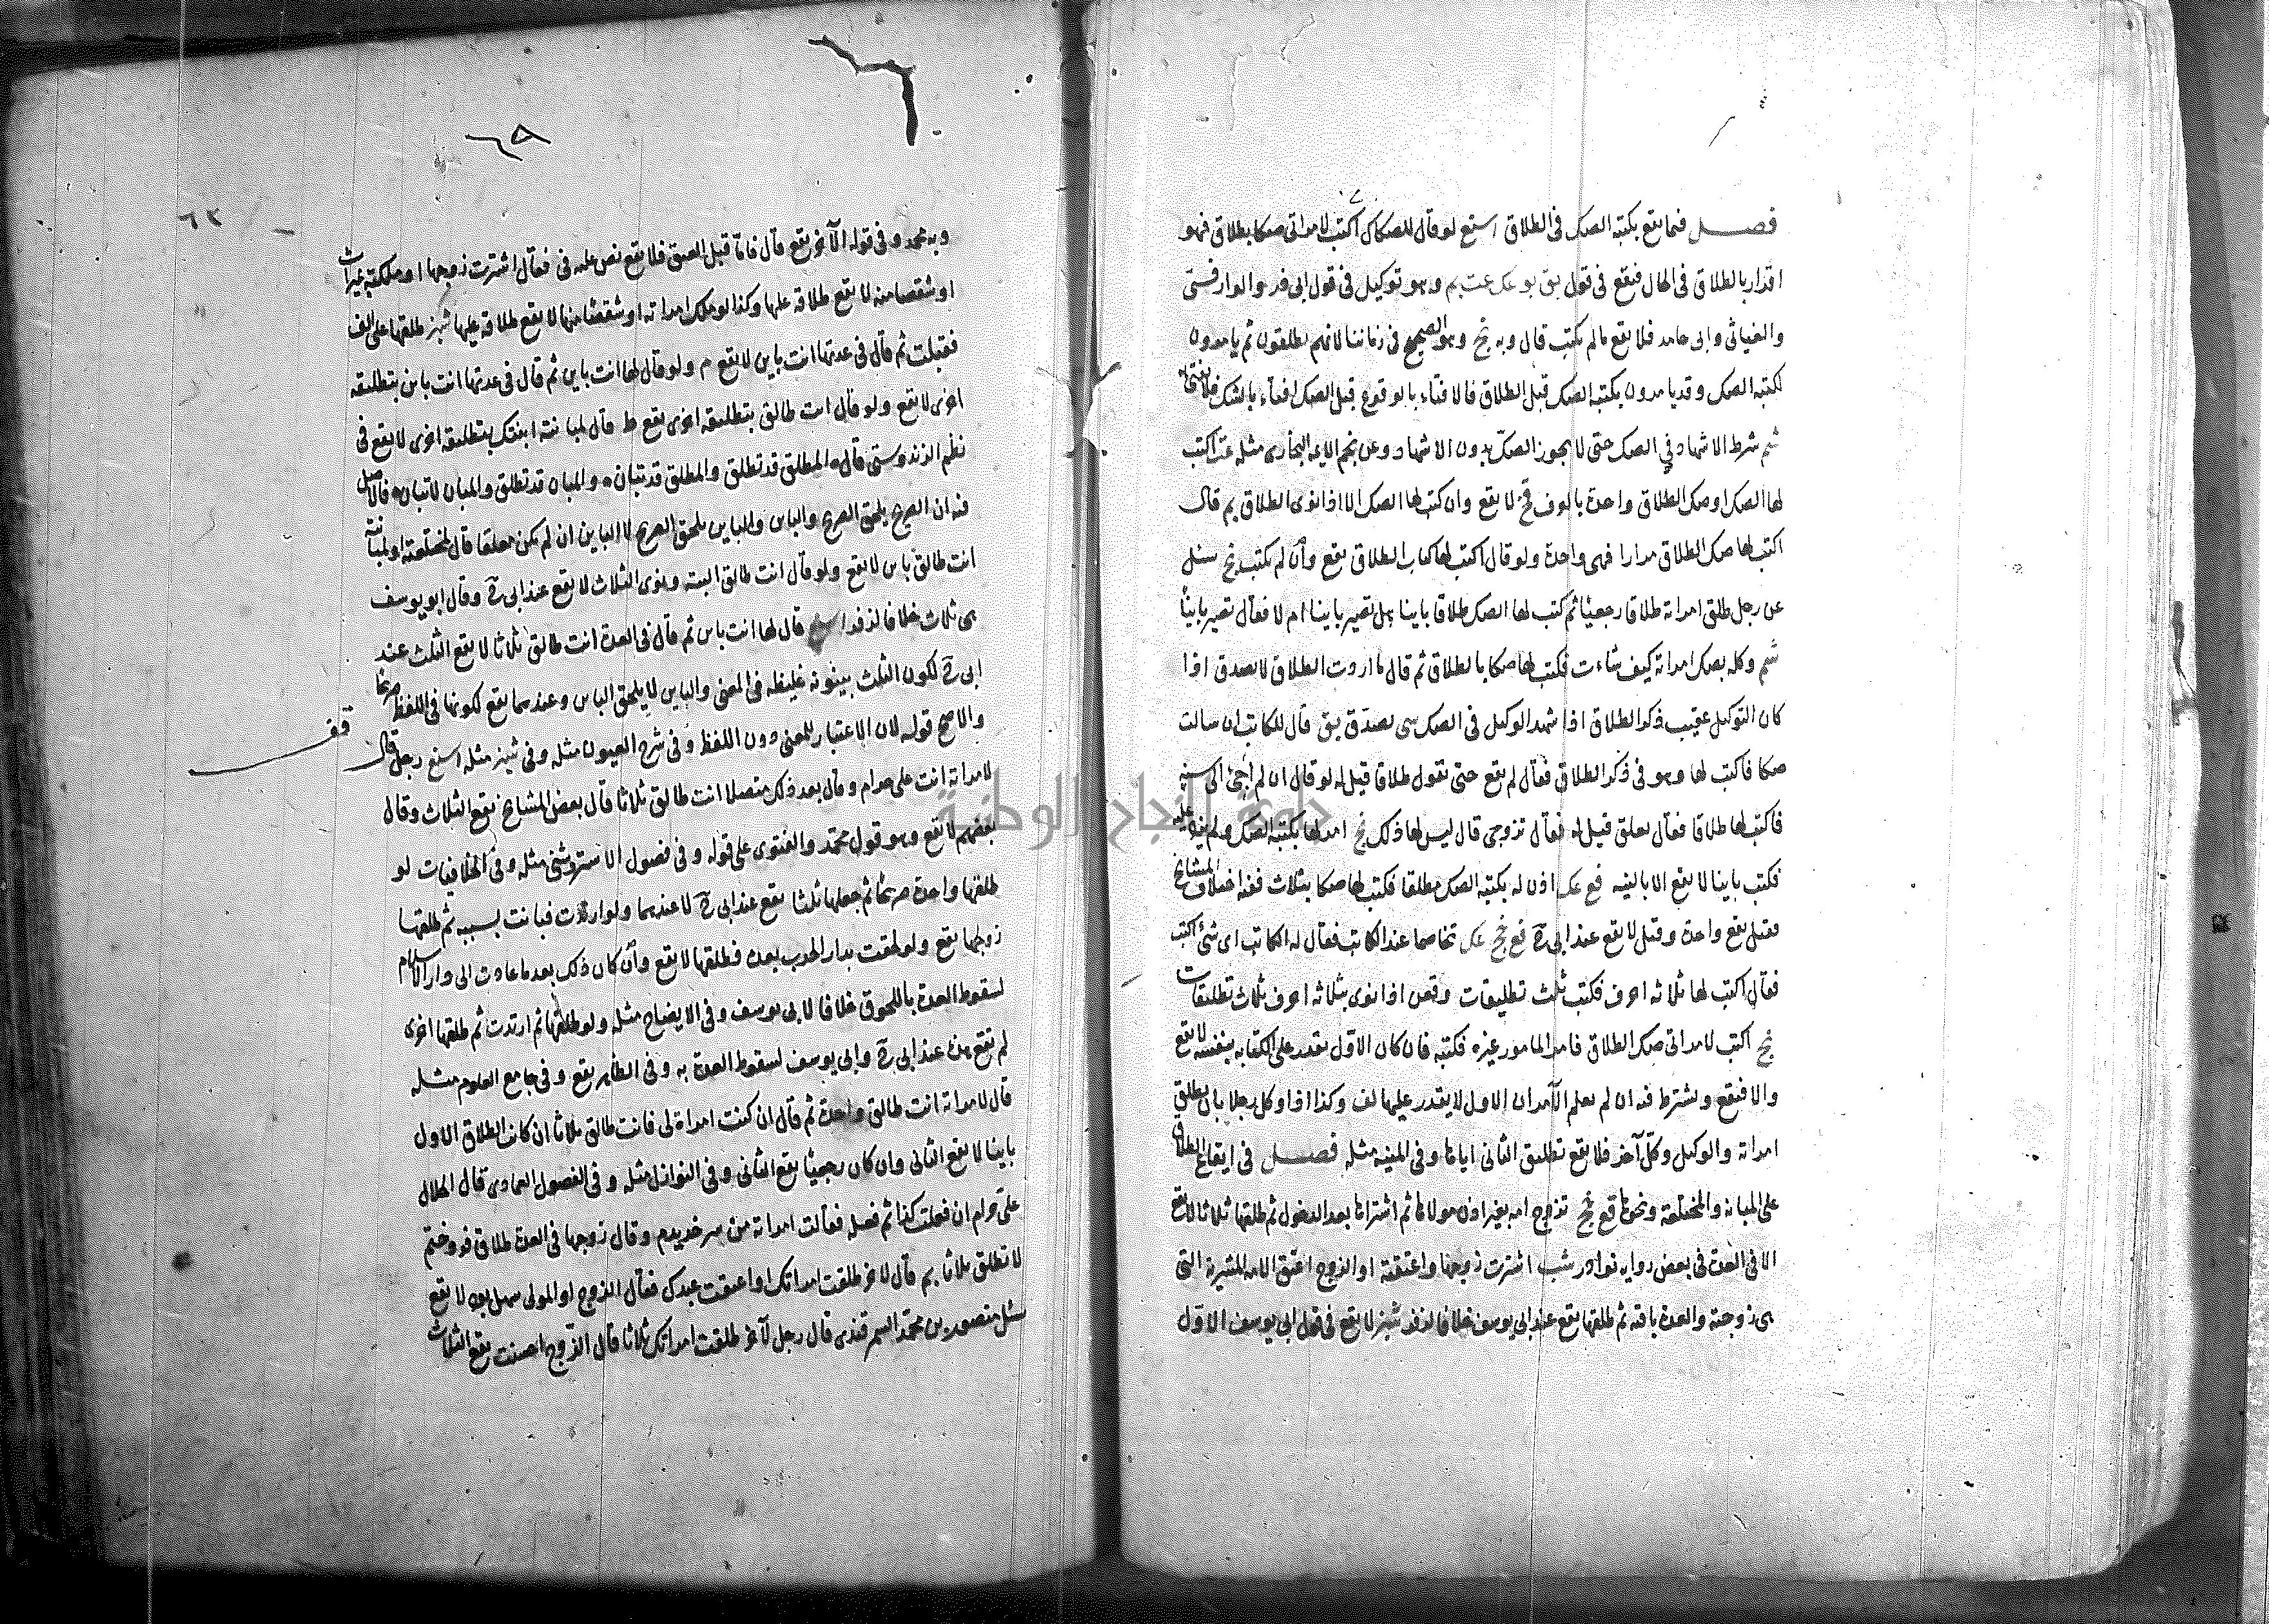 فصل فيما يقع بكتبه الصك في الطلاق اسنع لو قال للصكاك اكتب لامراتي صكا بطلاق فهو
اقرار بالطلاق في الحال فيقع في قول بق بو عك عت بم وهو توكيل في قول ابي ذر والوار
والغياثي وابي حامد فلا يقع مالم يكتب قال وبه نج وهو الصحيح في زماننا لانهم يطلقون ثم يامرون
لكتبه الصك وقد يامرون بكتبه الصك قبل الطلاق فالافتاء بالوقوع قبل الصك افتاء بالشك فلا
شم شرط الاشهاد في الصك حتى لا يجوز الصك بدون الاشهاد وعن نجم الايمه البخاري مثله عت اكتب
لها الصك او صك الطلاق واحدة بالوف لا يقع وان كتب لها الصك الا اذا نوى الطلاق بم قال
اكتب لها صك الطلاق مرارا فهي واحدة ولو قال اكتب لها كتاب الطلاق يقع وان لم يكتب نج سئل
عن رجل طلق امراته طلاقا رجعيا ثم كتب لها الصك طلاقا باينا هل تصير باينا ام لا فقال تصير باينا
شم وكله بصك امراته كيف شاءت فكتب لها صكا بالطلاق ثم قال ما اردت الطلاق لا يصدق اذا
كان التوكيل عقيب ذكر الطلاق اذا شهد الوكيل في الصك يصدق بق قال للكاتب ان سالت
صكا فاكتب لها وهو في ذكر الطلاق فقال لم يقع حتى يقول طلاقا قيل له لو قال ان لم اجئ الى سنة
فاكتب لها طلاقا فقال يعلق قيل له فقال تزوجي قال ليس لها ذلك نج امرها بكتبه الصك ولم
فكتب باينا لا يقع الا بالنيه فع عك اذن له بكتبه الصك مطلقا فكتب لها صكا بثلاث ففيه اختلاف المشايخ
فقيل يقع واحدة وقيل لا يقع عند ابي ح فع نج عك تخاصما عند الكاتب فقال له الكاتب اي شئ اكتب
فقال اكتب لها ثلاثه احرف فكتب ثلث تطليقات وقعن اذا نوى بثلاثه احرف ثلاث تطليقات
نج اكتب لامراتي صك الطلاق فامر المامور غيره فكتبه فان كان الاول يقدر على الكتابه بنفسه لا يقع
والا فيقع ويشترط فيه ان لم يعلم الآمر ان الاول لا يقدر عليها لف وكذا اذا وكل رجلا بان يطلق
امراته والوكيل وكل آخر فلا يقع تطليق الثاني اياها وفي المنيه مثله فصل في ايقاع الطلاق
على المبانه والمختلعة ونحوها قع نج تزوج امه بغير اذن مولاها ثم اشتراها بعد الدخول ثم طلقها ثلاثا لا يقع
الا في العدة في بعض روايه نوادر شب اشترت زوجها واعتقته او الزوج اعتق الامه المشترة التي
هي زوجته والعدة باقيه ثم طلقها يقع عند ابي يوسف خلافا لزفر شيز لا يقع في قول ابي يوسف الاول
٦٢
وبه محمد وفي قوله الآخر يقع قال فاما قبل العتق فلا يقع نص عليه في فقال اشترت زوجها او ملكته بميراث
او شقصا منه لا يقع طلاقه عليها وكذا لو ملك امراته او شقصا منها لا يقع طلاقه عليها شيز طلقها على الف
فقبلت ثم قال في عدتها انت باين لا يقع م ولو قال لها انت باين ثم قال في عدتها انت باين بتطليقه
اخرى لا يقع ولو قال انت طالق بتطليقه اخرى يقع ط قال لمبانته ابنتك بتطليقه اخرى لا يقع في
نظم الزندوستي قال المطلق قد تطلق والمطلق قد تبان والمبان قد تطلق والمبان لا تبان فالاصل
فيه ان الصريح يلحق الصريح والباين والباين يلحق الصريح لا الباين ان لم يكن معلقا قال لمختلعته او لمبانته
انت طالق باين لا يقع ولو قال انت طالق البته ونوى الثلاث لا يقع عند ابي ح وقال ابو يوسف
هي ثلاث خلافا لزفر اسنع قال لها انت باين ثم قال في العدة انت طالق ثلاثا لا يقع الثلث عند
ابي ح لكون الثلث بينونه غليظه في المعنى والباين لا يلحق الباين وعندهما يقع لكونها في اللفظ صريحا
والاصح قوله لان الاعتبار للمعنى دون اللفظ وفي شرح العيون مثله وفي شيز مثله اسنع رجل قال
قف
لامراته انت علي حرام وقال بعد ذلك متصلا انت طالق ثلاثا قال بعض المشايخ يقع الثلاث وقال
بعضهم لا يقع وهو قول محمد والفتوى على قوله وفي فصول الاستروشني مثله وفي الخلافيات لو
طلقها واحدة صريحا ثم جعلها ثلثا يقع عند ابي ح لا عندهما ولو ارتدت فبانت بسببه ثم طلقها
زوجها يقع ولو لحقت بدار الحرب بعده فطلقها لا يقع وان كان ذلك بعد ما عادت الى دار الاسلام
لسقوط العدة باللحوق خلافا لابي يوسف وفي الايضاح مثله ولو طلقها ثم ارتدت ثم طلقها اخرى
لم يقع هن عند ابي ح وابي يوسف لسقوط العدة به وفي الظاهر يقع وفي جامع العلوم مثله
قال لامراته انت طالق واحدة ثم قال ان كنت امراة لي فانت طالق ثلاثا ان كانت الطلاق الاول
باينا لا يقع الثاني وان كان رجعيا يقع الثاني وفي النوازل مثله وفي الفصول العمادي قال الحلال
علي حرام ان فعلت كذا ثم فعله فقالت امراته من سر خريدم وقال زوجها في العدة طلاق فروختم
لا تطلق ثلاثا بم قال لاخر طلقت امراتك او اعتقت عبدك فقال الزوج او المولى سهل بود لا يقع
سئل منصور بن محمد السمرقندي قال رجل لآخر طلقت امراتك ثلاثا قال الزوج احسنت يقع الثلاث
جامعة النجاح الوطنية